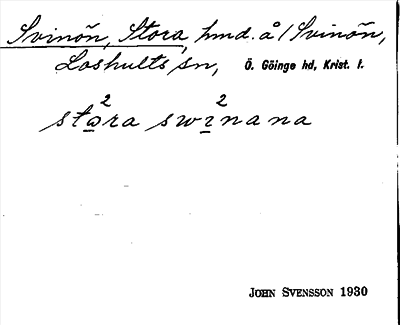 Svinön, Stora, hmd. å / Svinön,
Loshults sn, Ö. Göinge hd, Krist. l.
stω̲²ra swı̲²nana
John Svensson 1930